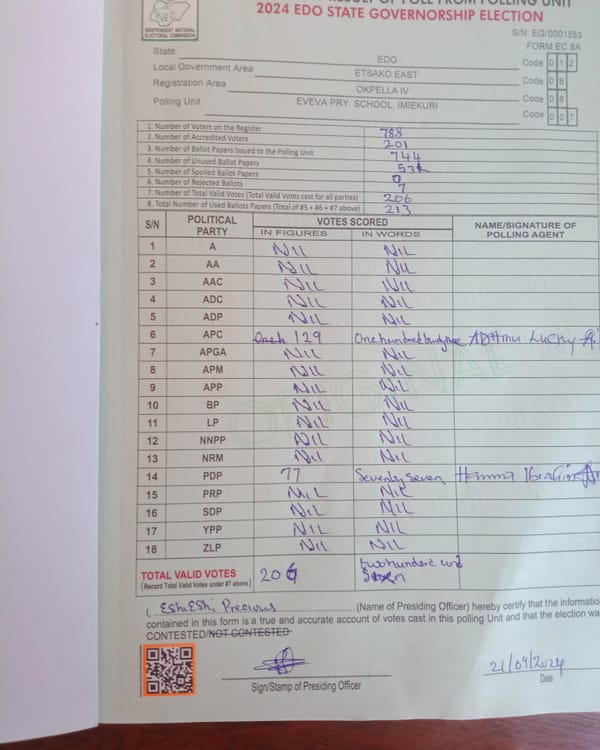 INDEPENDENT NATIONAL
ELECTORAL COMMISSION
2024 EDO STATE GOVERNORSHIP ELECTION
S/N EG/0001553
FORM EC 8A
State EDO Code 0 1 2
Local Government Area ETSAKO EAST Code 0 8
Registration Area OKPELLA IV Code 0 8
Polling Unit EVEVA PRY. SCHOOL, IMIEKURI Code 0 0 7
1. Number of Voters on the Register 788
2. Number of Accredited Voters 201
3. Number of Ballot Papers Issued to the Polling Unit 744
4. Number of Unused Ballot Papers
5. Number of Spoiled Ballot Papers 0
6. Number of Rejected Ballots 7
7. Number of Total Valid Votes (Total Valid Votes cast for all parties) 206
8. Total Number of Used Ballots Papers (Total of #5 + #6 + #7 above) 213
S/N POLITICAL PARTY VOTES SCORED NAME/SIGNATURE OF POLLING AGENT
IN FIGURES IN WORDS
1 A NIL NIL
2 AA NIL NIL
3 AAC NIL NIL
4 ADC NIL NIL
5 ADP NIL NIL
6 APC 129 ADAMU LUCKY
7 APGA NIL NIL
8 APM NIL NIL
9 APP NIL NIL
10 BP NIL NIL
11 LP NIL NIL
12 NNPP NIL NIL
13 NRM NIL NIL
14 PDP 77 Seventy Seven
15 PRP NIL NIL
16 SDP NIL NIL
17 YPP NIL NIL
18 ZLP NIL NIL
TOTAL VALID VOTES 206 two hundred and
(Record Total Valid Votes under #7 above)
I, EshiEshi Precious (Name of Presiding Officer) hereby certify that the information
contained in this form is a true and accurate account of votes cast in this polling Unit and that the election was
CONTESTED/NOT CONTESTED
21/09/2024
Sign/Stamp of Presiding Officer Date
ORIGINAL